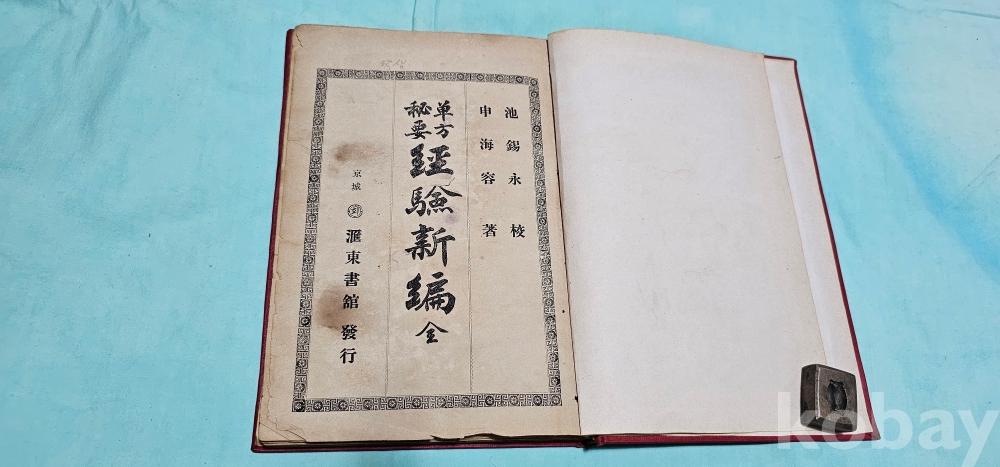 池錫永 校
申海容 著
單方
秘要
經驗新編 全
京城 滙東書館 發行
kobay